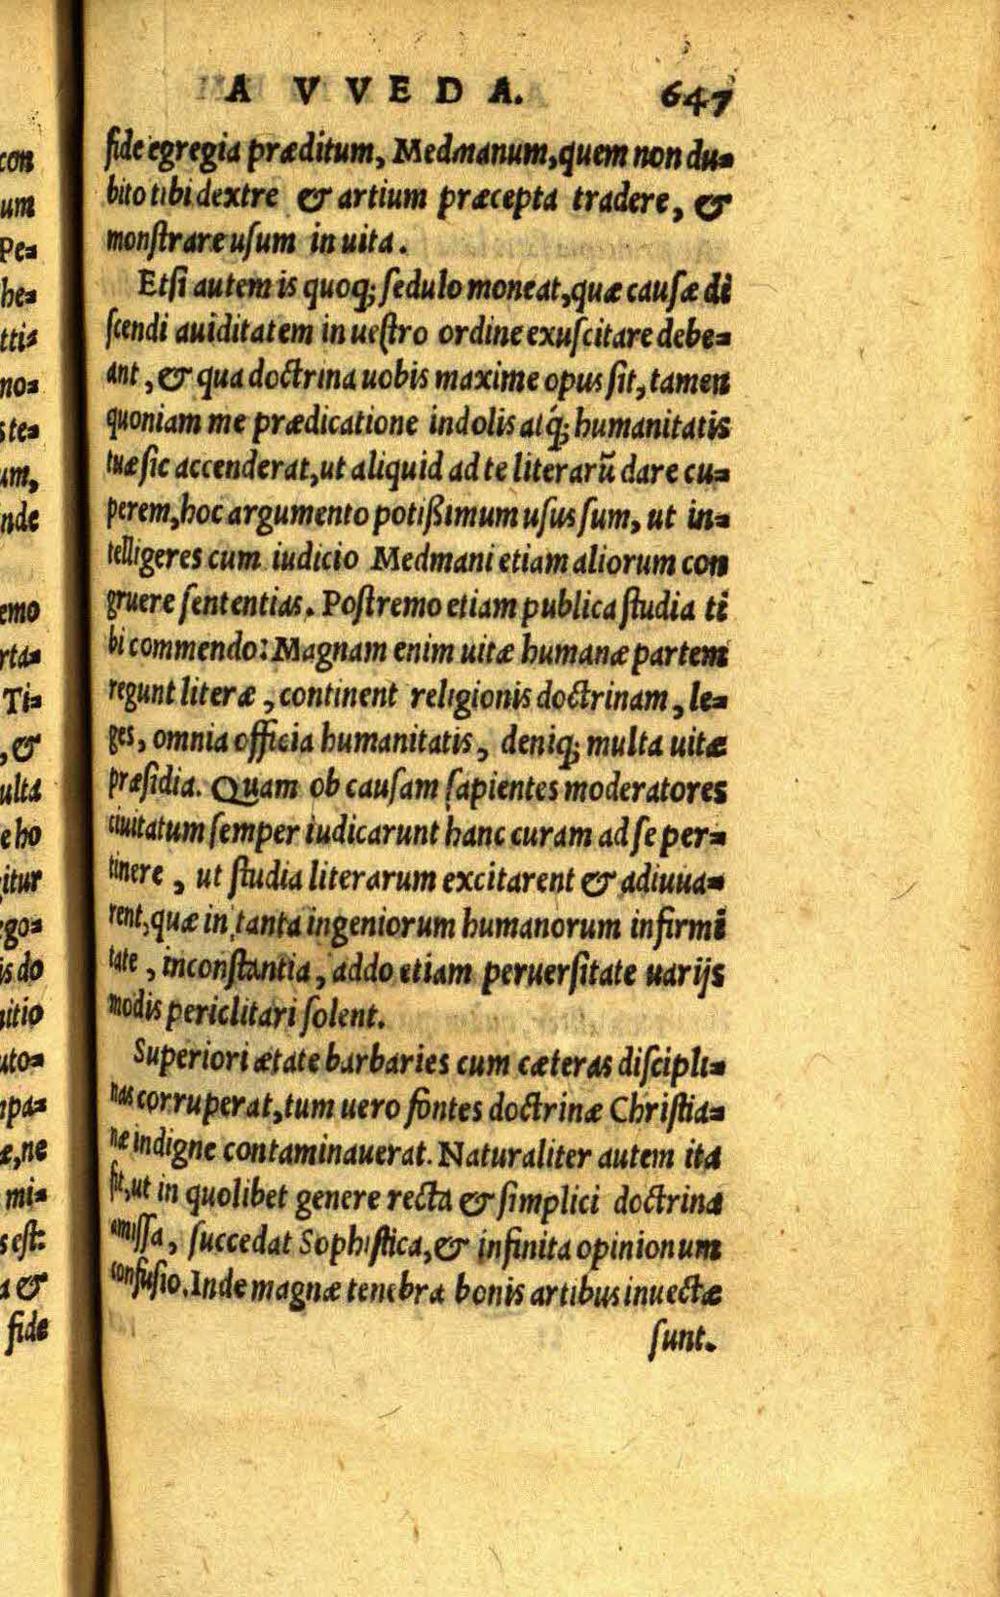 A VVEDA. 647
fide egregia præditum, Medmanum, quem non du=
bito tibi dextre & artium præcepta tradere, &
monſtrare uſum in uita.
Etſi autem is quoq; ſedulo moneat, quæ cauſæ di
ſcendi auiditatem in ueſtro ordine exuſcitare debe=
ant, & qua doctrina uobis maxime opus ſit, tamen
quoniam me prædicatione indolis atq́; humanitatis
tuæ ſic accenderat, ut aliquid ad te literarū dare cu=
perem, hoc argumento potißimum uſus ſum, ut in=
telligeres cum iudicio Medmani etiam aliorum con
gruere ſententias. Poſtremo etiam publica ſtudia ti
bi commendo: Magnam enim uitæ humanæ partem
regunt literæ, continent religionis doctrinam, le=
ges, omnia officia humanitatis, deniq; multa uitæ
præſidia. Quam ob cauſam ſapientes moderatores
ciuitatum ſemper iudicarunt hanc curam ad ſe per=
tinere, ut ſtudia literarum excitarent & adiuua=
rent, quæ in tanta ingeniorum humanorum infirmi
tate, inconſtantia, addo etiam peruerſitate uarijs
modis periclitari ſolent.
Superiori ætate barbaries cum cæteras diſcipli=
nas corruperat, tum uero fontes doctrinæ Chriſtia=
næ indigne contaminauerat. Naturaliter autem ita
fit, ut in quolibet genere recta & ſimplici doctrina
amiſſa, ſuccedat Sophiſtica, & infinita opinionum
confuſio. Inde magnæ tenebræ bonis artibus inuectæ
ſunt.
con
um
Pe=
he=
ttis
no=
s te=
um,
nde
emo
rta=
Ti=
, &
ulta
e ho
itur
ego=
is do
itio
uto=
upa=
æ, ne
mi=
s eſt:
a &
fide